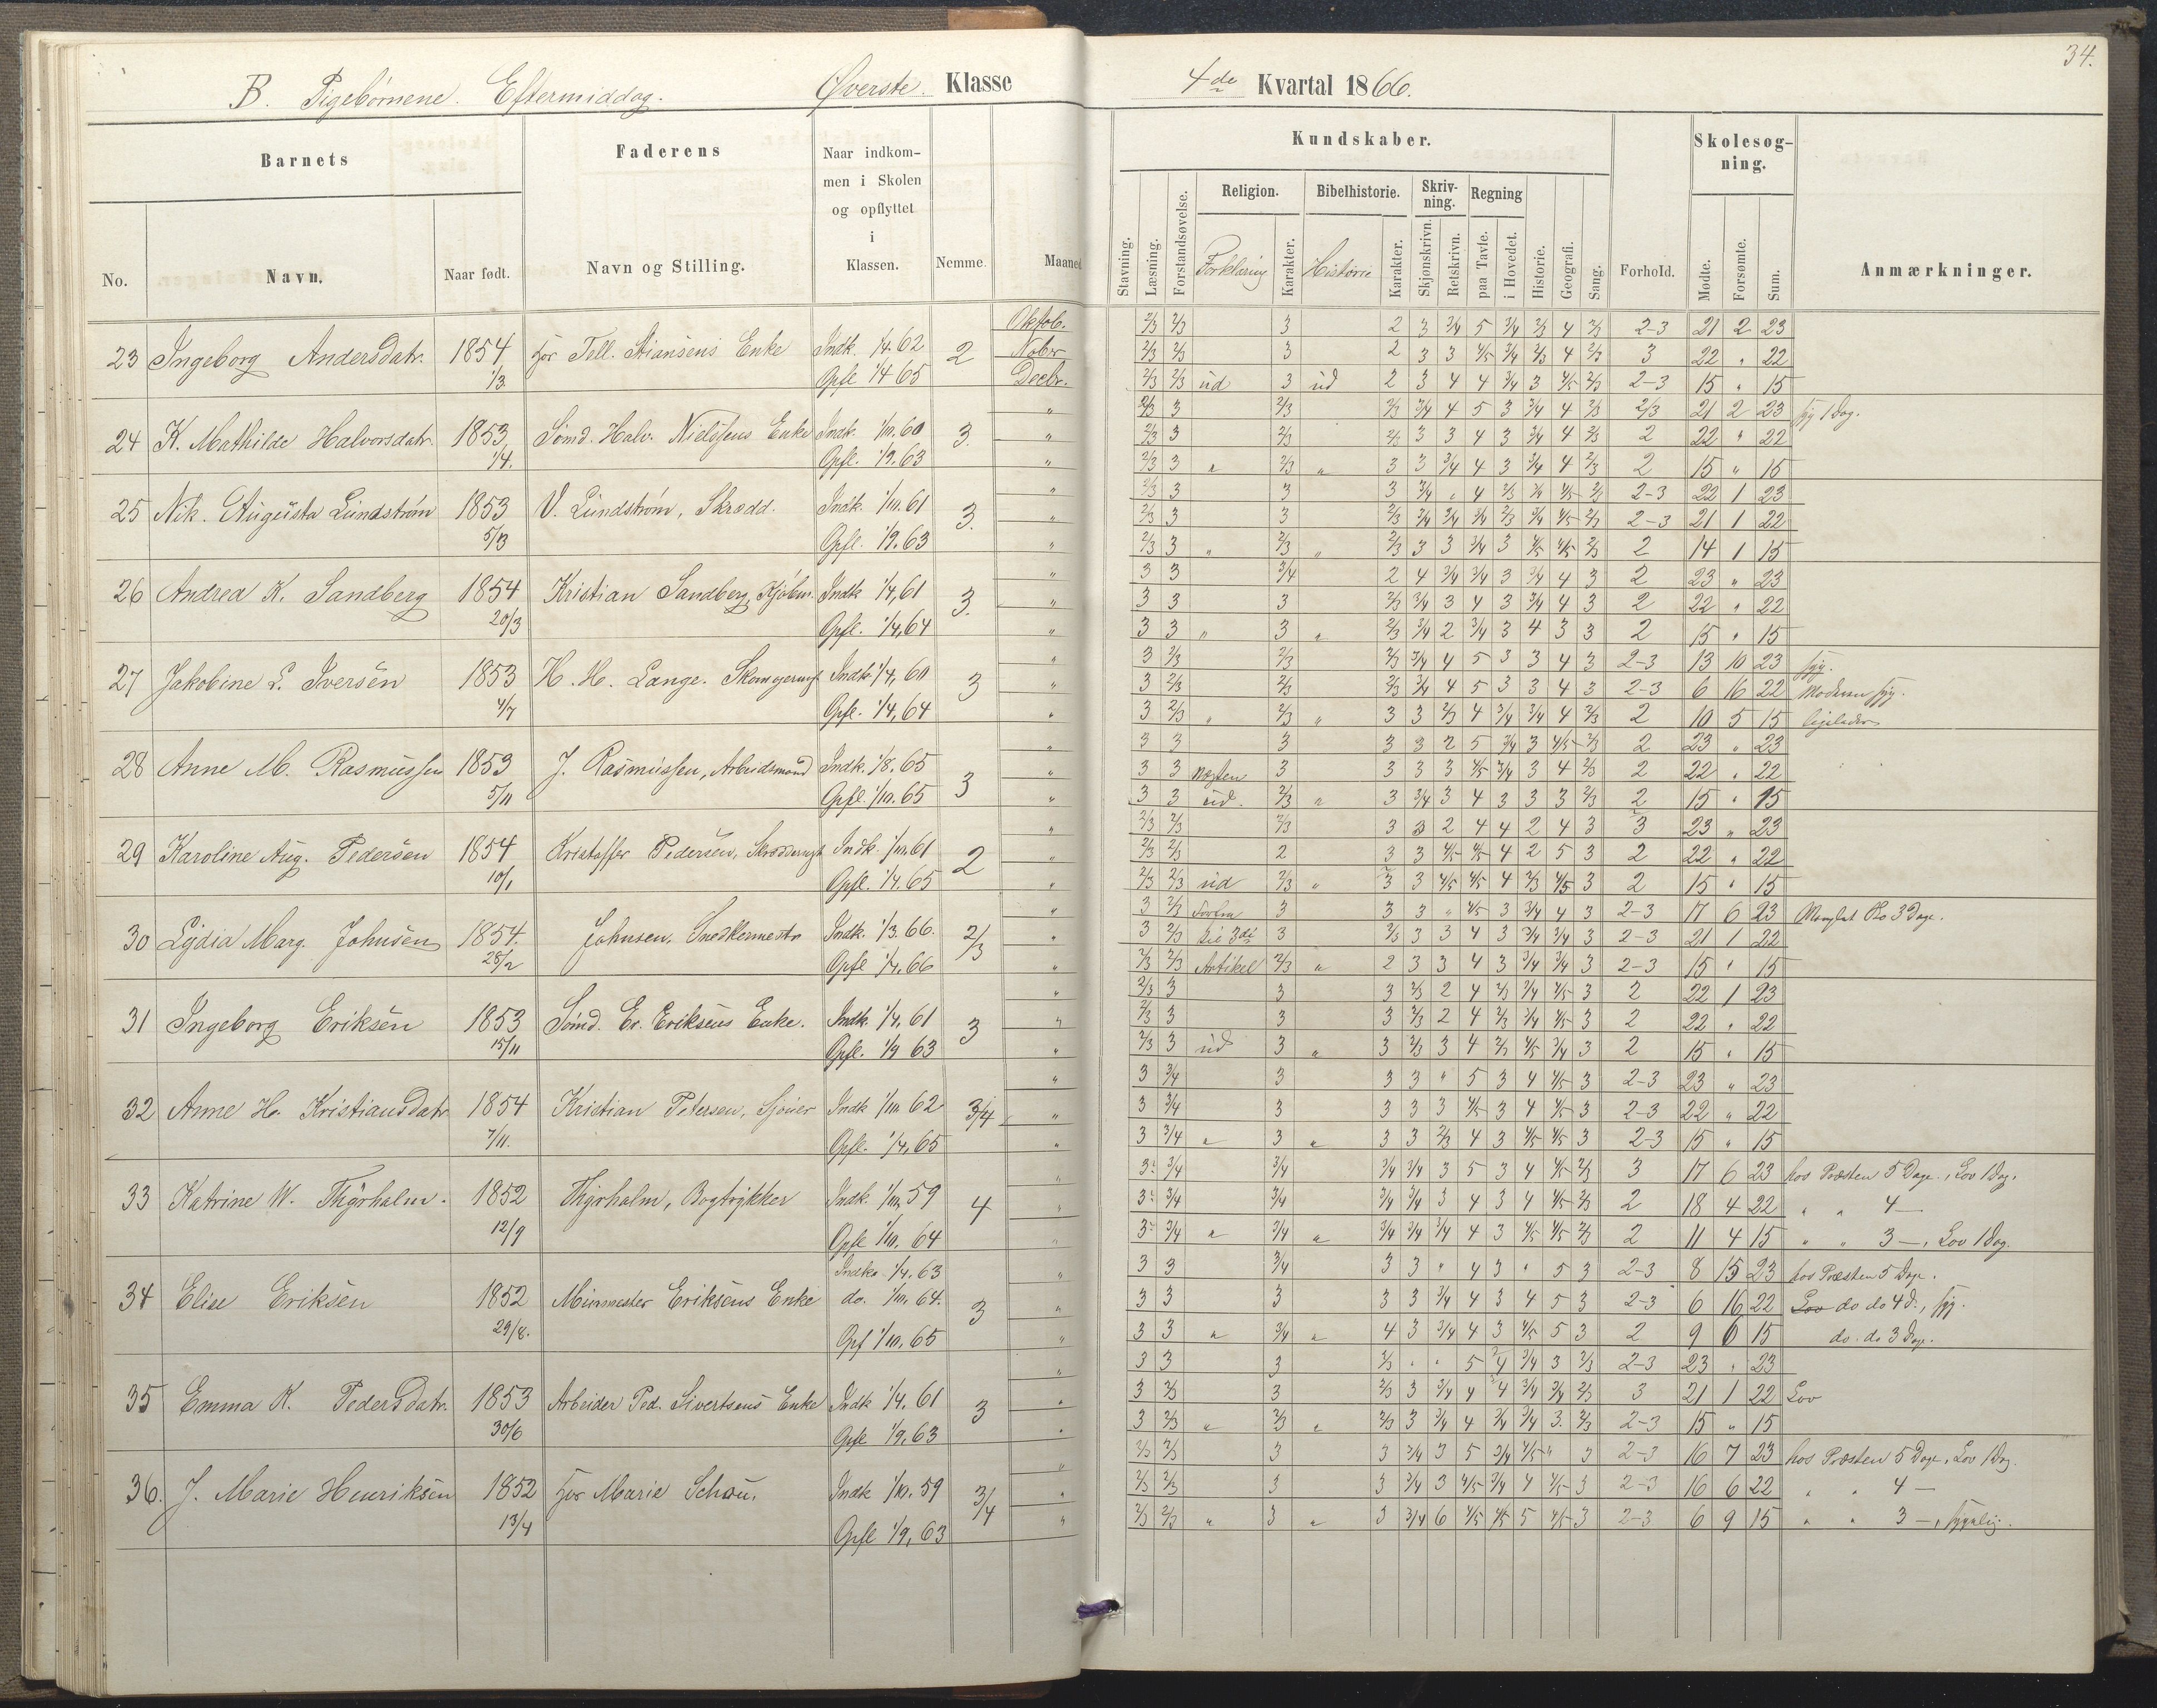 34.
B. Pigebørnene. Eftermiddag. Øverste Klasse
4de Kvartal 1866.
Barnets
Faderens
Naar indkommen i Skolen og opflyttet i Klassen.
Nemme.
Maaned
No. Navn. Naar født. Navn og Stilling.
Kundskaber.
Skolesogning.
Stavning. Læsning. Forstandsøvelse. Religion. Bibelhistorie. Skrivning. Regning
Forklaring Karakter. Historie Karakter. Skjonskrivn. Retskrivn. paa Tavle. i Hovedet. Historie. Geografi. Sang. Forhold. Mødte. Forsømte. Sum. Anmærkninger.
23 Ingeborg Andersdatr. 1854 1/3. Tell. Stiansens Enke Indk. 1/4.62 Opfl 1/4 65 2
Oktob. 2/3 2/3 3 2 3 3/4 5 3/4 2/3 4 2/3 2-3 21 2 23
Nobr. 2/3 2/3 3 2 3 3 4/5 3/4 2/3 4 2/3 3 22 " 22
Decbr. 2/3 2/3 ud 3 ud 2 3 4 4 3/4 3 4/5 2/3 2-3 15 " 15
24 K. Mathilde Halvorsdatr. 1853 1/4. Sømd. Halv. Nielsens Enke Indk. 1/10.60 Opfl. 1/9.63 3.
" 2/3 3 2/3 2/3 3/4 4 5 3 3/4 4 2/3 2/3 21 2 23 syg 1 Dag.
" 2/3 3 2/3 2/3 3 3 4 3 3/4 4 2/3 2 22 " 22
" 2/3 3 " 2/3 " 3 3 3/4 4 3 3/4 4 2/3 2 15 " 15
25 Nik. Augusta Lundstrøm 1853 5/3 V. Lundstrøm, Skrædd. Indk. 1/10.61 Opfl. 1/9.63 3.
" 2/3 3 3 3 3/4 " 4 2/3 3/4 4/5 2/3 2-3 22 1 23
" 2/3 3 3 2/3 3/4 3/4 3/4 2/3 3/4 4/5 2/3 2-3 21 1 22
" 2/3 3 " 2/3 " 2/3 3 3 3/4 3 4/5 4/5 2/3 2 14 1 15
26 Andrea K. Sandberg 1854 20/3 Kristian Sandberg, Kjøbm. Indk 1/4,61 Opfl. 1/4,64 3.
" 3 3 3/4 2 4 3/4 3/4 3 3/4 4 3 2 23 " 23
" 3 3 3 2/3 3/4 3 4 3 3/4 4 3 2 22 " 22
" 3 3 " 3 " 2/3 3/4 2 3/4 3 4 3 3 2 15 " 15
27 Jakobine L. Iversen 1853 4/7 H. H. Lange. Indk 1/4, 60 Opfl. 1/4,64 3
" 3 2/3 2/3 2/3 3/4 4 5 3 3 4 3 2-3 13 10 23 syg.
" 3 2/3 2/3 2/3 3/4 4 5 3 3 4 3 2-3 6 16 22 Moderen syg.
" 3 2/3 " 2/3 " 3 3 2/3 4 3/4 3/4 4 2/3 2 10 5 15 ligeledes
28 Anne M. Rasmussen 1853 5/11 J. Rasmussen, Arbeidsmand Indk. 1/8.65 Opfl. 1/10.65 3
" 3 3 3 3 3 2 5 3/4 3 4/5 2/3 2 23 " 23
" 3 3 Næsten 3 3 3 3 4/5 3/4 3 4 2/3 2 22 " 22
" 3 3 ud. 2/3 " 3 3/4 3 4 3 3 3 2/3 2 15 " 15
29 Karoline Aug. Pedersen 1854 10/1 Kristoffer Pedersen, Indk. 1/10.61 Opfl. 1/4.65 2
" 2/3 2/3 2/3 3 3 2 4 4 2 4 3 3 23 " 23
" 2/3 2/3 2 3 3 4/5 4/5 4 2 5 3 2 22 " 22
" 2/3 2/3 ud 2/3 " 3 3 4/5 4/5 4 2/3 4/5 3 2 15 " 15
30 Lydia Marg. Johnsen 1854. 28/2 Johnsen, Snedkermestr Indk. 1/3.66. Opfl 1/4.66 2/3
" 3 2/3 3 3 3 " 4/5 3 3/4 4 3 2-3 17 6 23 3 Dage.
" 3 2/3 3di 3 2/3 3 3 4 3 3/4 3/4 3 2-3 21 1 22
" 2/3 2/3 Artikel 2/3 " 2 3 3 4 3 3/4 3/4 3 2-3 15 " 15
31 Ingeborg Eriksen 1853 15/11 Sømd. Er. Eriksens Enke. Indk. 1/4,61 Opfl. 1/9 63 3
" 2/3 3 3 3 2/3 2 4 2/3 3/4 4/5 3 2 22 1 23
" 2/3 3 3 3 2/3 2 4 2/3 3/4 4/5 3 2 22 " 22
" 2/3 3 ud 3 " 3 2/3 3 4 2/3 4/5 3/4 3 2 15 " 15
32 Anne H. Kristiansdatr 1854 7/11. Kristian Petersen, Sjøuer Indk 1/10 62 Opfl. 1/4,65 3/4
" 3 3/4 3 3 3 " 5 3 4 4/5 3 2-3 23 " 23
" 3 3/4 3 3 3 3 4/5 3 4 4/5 3 2-3 22 " 22
" 3 3/4 " 3 " 3 3 2/3 4 3 4/5 4/5 3 2-3 15 " 15
33 Katrine W. Thyrholm. 1852 12/9 Thyrholm, Bogtrykker Indk 1/10,59 Opfl 1/10. 64 4
" 3 3/4 3/4 3/4 3/4 3 5 3 4 4/5 2/3 3 17 6 23 hos Præsten 5 Dage., Lov 1 Dag.
" 3 3/4 3/4 3/4 3/4 3 4 3 4 4/5 2/3 2 18 4 22 " " 4 —
" 3 3/4 " 3/4 " 3/4 3/4 3/4 4 3 4/5 4/5 2/3 2 11 4 15 " " 3 —, Lov 1 Dag.
34 Elise Eriksen 1852 29/8. Murmester Eriksens Enke Indk. 1/4.63 do. 1/10, 64. Opf 1/10,65 3
" 3 3 3/4 3 3 " 4 3 " 5 3 2-3 8 15 23 hos Præsten 5 Dage.
" 3 3 3 3 3 3/4 4 3 4 5 3 2-3 6 16 22 Lov do do 4 d., syg.
" 3 3 " 3/4 " 4 3 3/4 4 3 4/5 5 3 2 9 6 15 do. do 3 Dage.
35 Emma K. Pedersdatr. 1853 30/6 Arbeider Ped. Sivertsens Enke Indk 1/4.61 Opfl 1/9,63 3
" 3 3 3 2/3 " " 5 4 3/4 3 2/3 2-3 23 " 23
" 3 2/3 3 2/3 3 3/4 4 4 3/4 3/4 2/3 3 21 1 22 Lov
" 3 2/3 " 2/3 " 2/3 3 3/4 4 3/4 3/4 3. 2/3 2-3 15 " 15
36. J. Marie Henriksen 1852 13/4 Marie Schou. Indk 1/10.59 Opfl 1/9,63 3/4
" 2/3 2/3 3 3 3/4 3 5 3/4 4/5 " 3 2-3 16 7 23 hos Præsten 5 Dage, Lov 1 Dag.
" 2/3 2/3 3 3 3/4 3 4/5 3/4 4 4/5 3 2-3 16 6 22 " " 4 —
" 2/3 2/3 " 3 " 3 3/4 6 4/5 4/5 5 4/5 3 2-3 6 9 15 " " 3 —, sygelig.